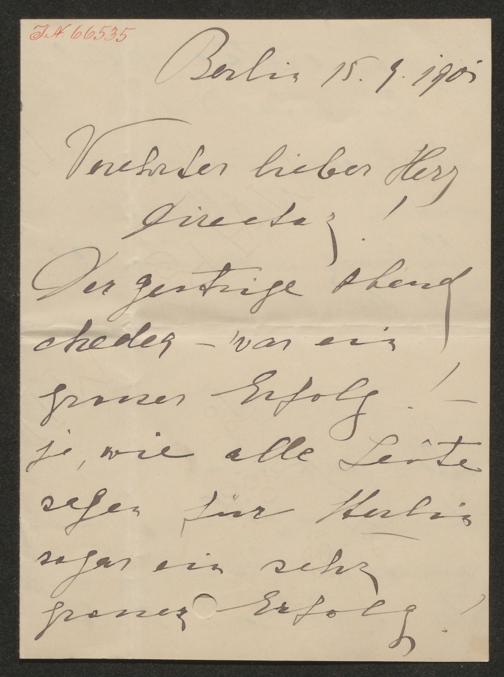 JN 66535
Berlin 15. 9. 190
Verehrter lieber Herr
Director!
Der gestrige Abend
war ein
grosser Erfolg! –
ja, wie alle Leute
sagen für Berlin
sogar ein sehr
grosser Erfolg!